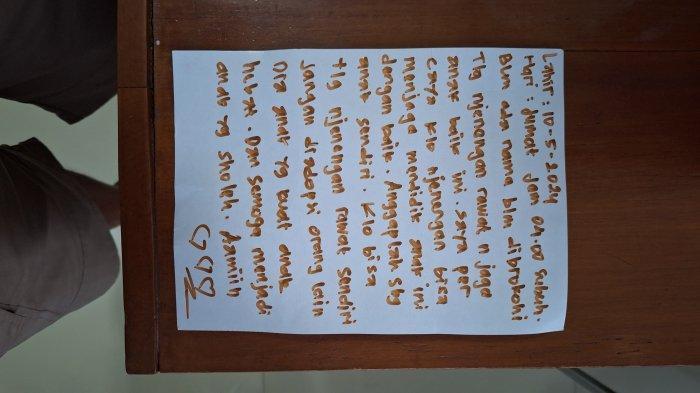 Lahir : 10-5-2024
Hari : Jumat jam 04.00 subuh.
Blm ada nama blm dibrokohi
Tlg njenengan rawat n jaga
anak baik ini. saya per
caya klo njenengan bisa
menjaga mendidik anak ini
dengan baik. Anggaplah sbg
anak sendiri. Klo bisa
tlg njenengan rawat sendiri
jangan diadopsi orang lain
Dia anak yg kuat anak
hebat. Dan semoga menjadi
anak yg sholeh. Aamiiin